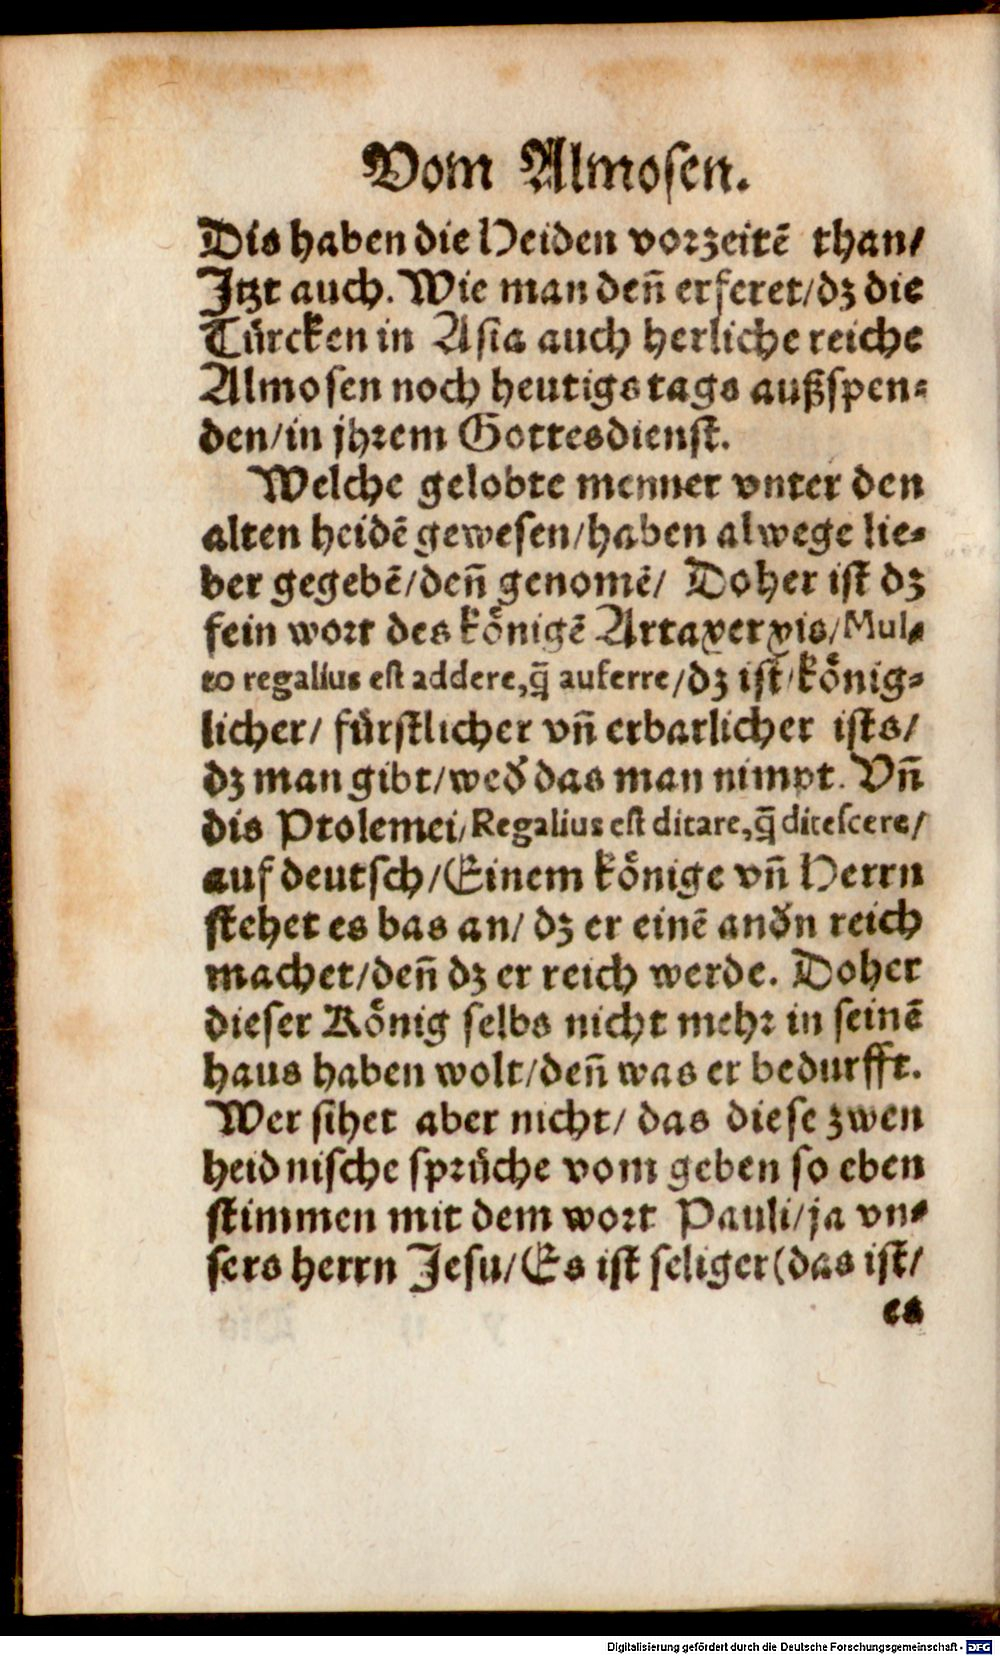 Vom Almosen.
Dis haben die Heiden vorzeitē than/
Jtzt auch. Wie man deñ erferet/dz die
Türcken in Asia auch herliche reiche
Almosen noch heutigs tags außspen-
den/in jhrem Gottesdienst.
Welche gelobte menner vnter den
alten heidē gewesen/haben alwege lie-
ber gegebē/deñ genomē/ Doher ist dz
fein wort des königē Artaxerxis/Mul-
to regalius est addere,q̄ auferre/dz ist/könig-
licher/ fürstlicher vñ erbarlicher ists/
dz man gibt/wed̕ das man nimpt. Vñ
dis Ptolemei/Regalius est ditare,q̄ ditescere/
auf deutsch/Einem könige vñ Herrn
stehet es bas an/ dz er einē and̕n reich
machet/deñ dz er reich werde. Doher
dieser König selbs nicht mehr in seinē
haus haben wolt/deñ was er bedurfft.
Wer sihet aber nicht/ das diese zwen
heidnische sprüche vom geben so eben
stimmen mit dem wort Pauli/ja vn-
sers herrn Jesu/Es ist seliger(das ist/
es
Digitalisierung gefördert durch die Deutsche Forschungsgemeinschaft - DFG